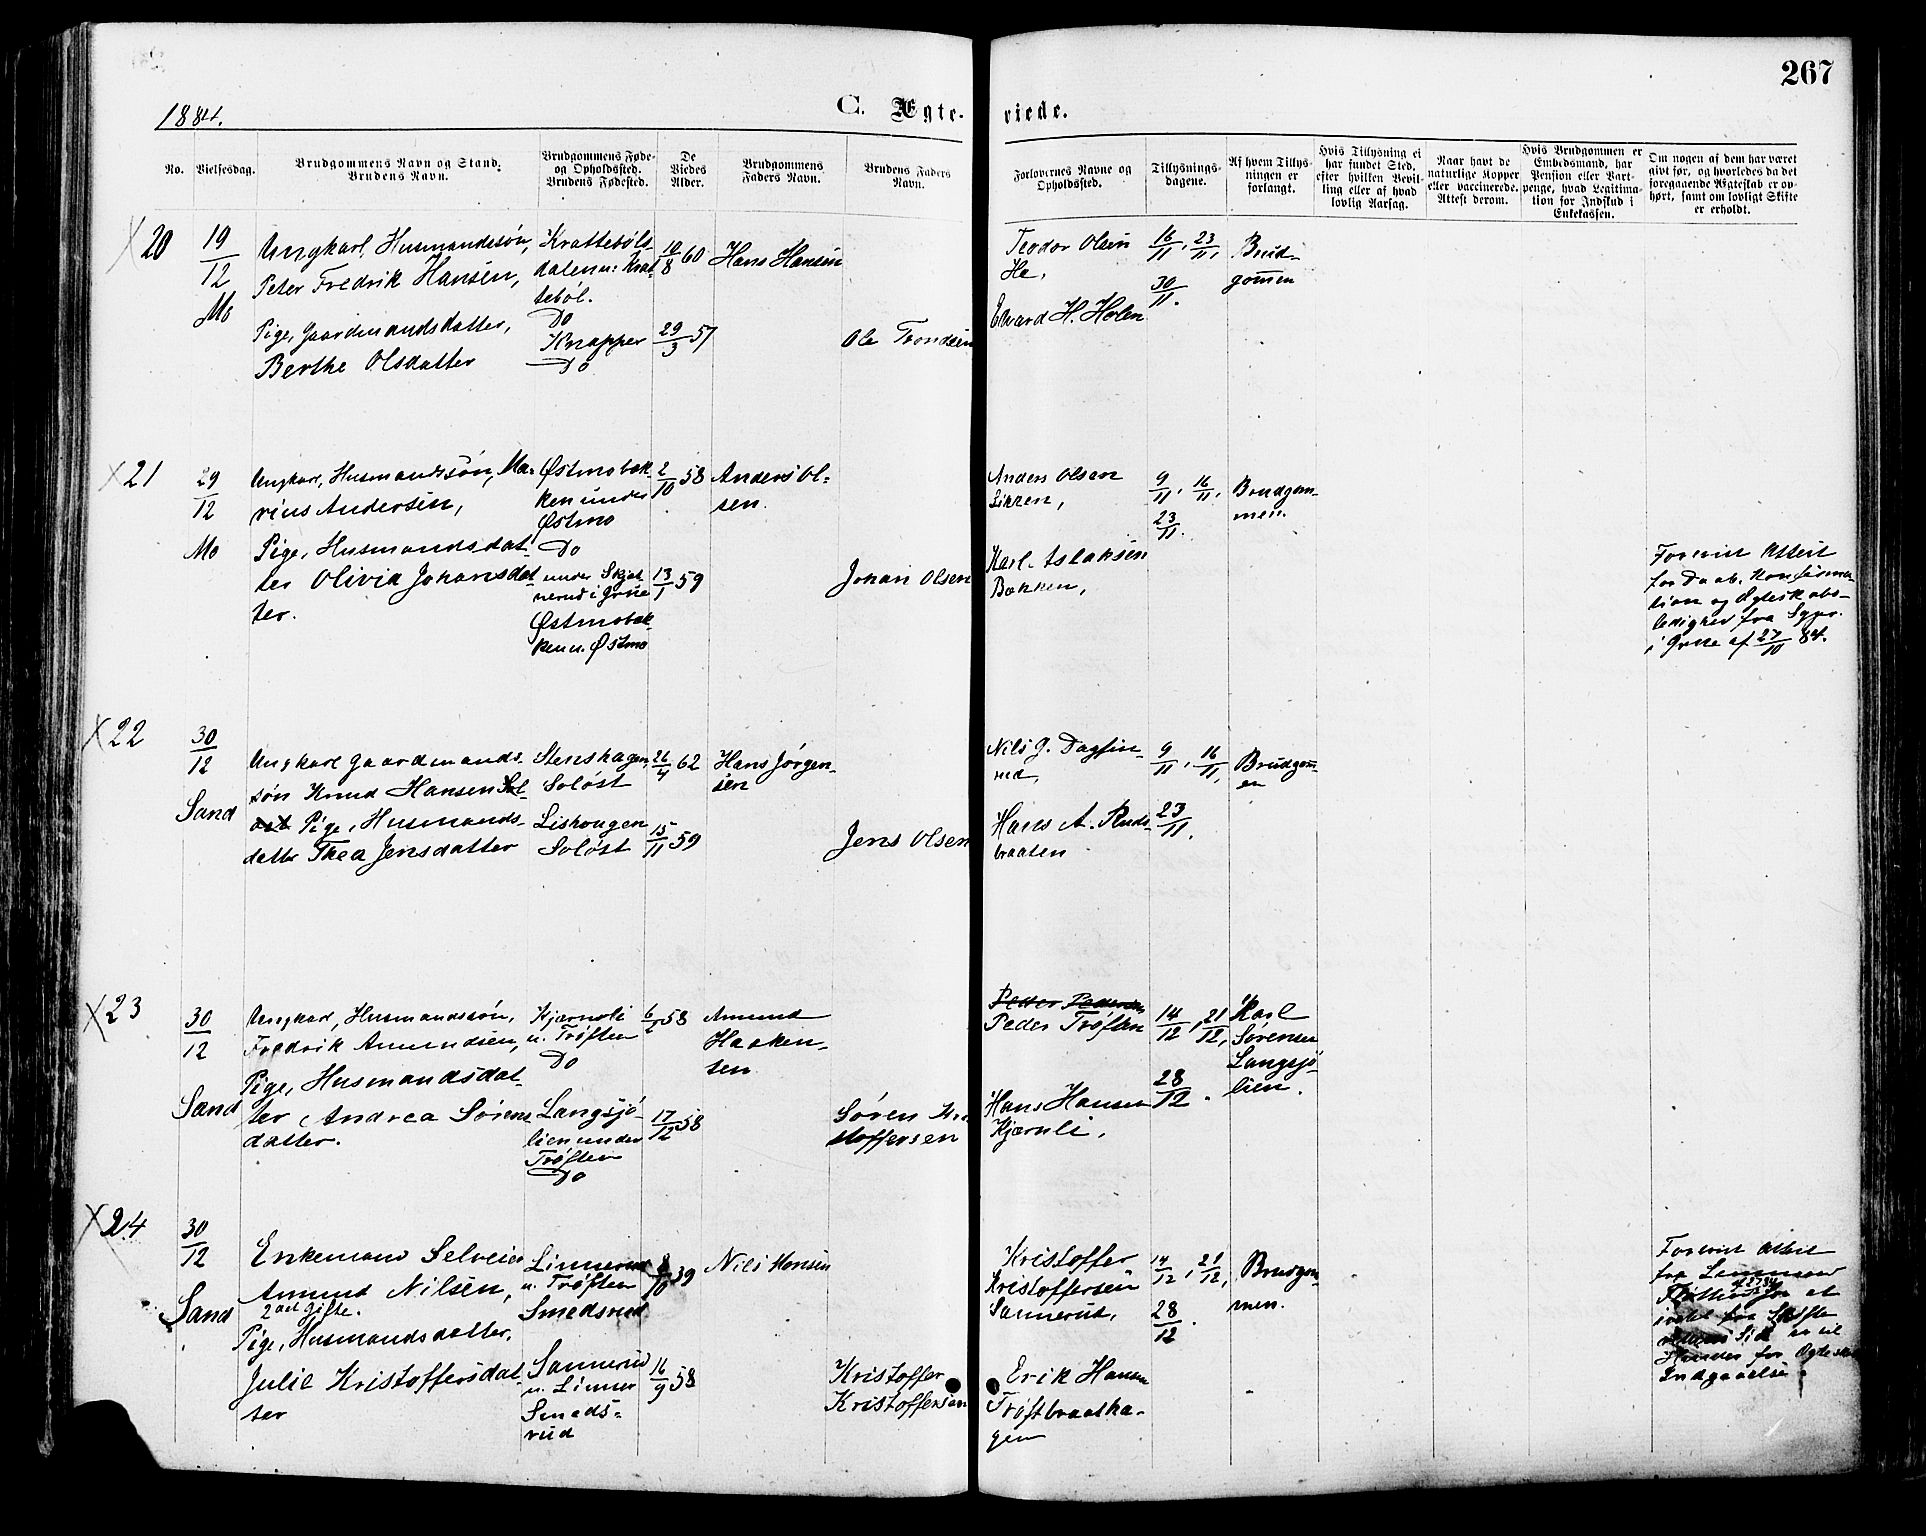 267
1884.
C. Ægte-
viede.
No.
Vielsesdag.
Brudgommens Navn og Stand.
Brudens Navn.
Brudgommens Føde-
og Opholdssted.
Brudens Fødested.
De
Viedes
Alder.
Brudgommens
Faders Navn.
Brudens Faders
Navn.
Forlovernes Navne og
Opholdssted.
Tillysnings-
dagene.
Af hvem Tillys-
ningen er
forlangt.
Hvis Tillysning ei
har fundet Sted,
efter hvilken Bevil-
ling eller af hvad
lovlig Aarsag.
Naar havt de
naturlige Kopper
eller vaccinerede.
Attest derom.
Hvis Brudgommen er
Embedsmand, har
Pension eller Vart-
penge, hvad Legitima-
tion for Indskud i
Enkekassen.
Om nogen af dem har været
givt før, og hvorledes da det
foregaaende Ægteskab er op-
hørt, samt om lovligt Skifte
er erholdt.
X 20
19/12
Mo
Ungkarl, Husmandssøn,
Peter Fredrik Hansen,
Pige, Gaardmandsdatter,
Berthe Olsdatter
Krattebøls-
dalen u. Krat-
tebøl.
Do
Knapper
Do
19/8 60
29/3 57
Hans Hansen
Ole Trondsen
Teodor Olsen
He,
Edvard H. Holen
16/11, 23/11,
30/11.
Brud-
gommen
X 21
29/12
Mo
Ungkarl, Husmandssøn, Ma-
rius Andersen,
Pige, Husmandsdat-
ter Olivia Johansdat-
ter.
Østmobak-
ken under
Østmo
Do
under Skjat-
nerud i Grue
Østmobak-
ken u. Østmo
2/10 58
13/1 59
Anders Ol-
sen.
Johan Olsen
Anders Olsen
Likken,
Karl Aslaksen
Bakken,
9/11, 16/11,
23/11.
Brudgom-
men.
Forevist Attest
for Daab, Konfirma-
tion og Ægteskabs-
ledighed fra Sgpr.
i Grue af 27/10 84.
X 22
30/12
Sand
Ungkarl Gaardmands-
søn Knud Hansen Sol-
øst Pige, Husmands-
datter Thea Jensdatter
Stenshagen
Soløst
Liskougen
Soløst
26/4 62
15/11 59
Hans Jørgen-
sen
Jens Olsen
Nils G. Dagfin-
rud,
Hans A. Ruds-
braaten
9/11, 16/11,
23/11.
Brudgom-
en
X 23
30/12
Sand
Ungkarl, Husmandssøn,
Fredrik Amundsen,
Pige, Husmandsdat-
ter Andrea Sørens-
datter.
Kjærnsli
u. Trøften
Do
Langsjø-
lien under
Trøften
Do
6/2 58
17/12 58
Amund
Haaken-
sen
Søren Kri-
stoffersen
Peder Pedersen
Peder Trøften
Hans Hansen
Kjærnli,
14/12, 21/12,
28/12.
Karl
Sørensen
Langsjø-
lien.
X 24
30/12
Sand
Enkemand Selveier
Amund Nilsen,
2det Gifte.
Pige, Husmandsdatter,
Julie Kristoffersdat-
ter
Linnerud
u. Trøften
Smedsrud
Sannerud
u. Linner
Smeds-
rud
8/10 39
16/9 58
Nils Hansen
Kristoffer
Kristoffersen
Kristoffer
Kristoffersen
Sannerud,
Erik Hansen
Trøftbraatha-
gen
14/12, 21/12,
28/12.
Brudgom-
men.
Forevist Attest
fra Lensmand
for at
intet fra Skifte
Side er til
Hinder for Ægteskabs
Indgaaelse.